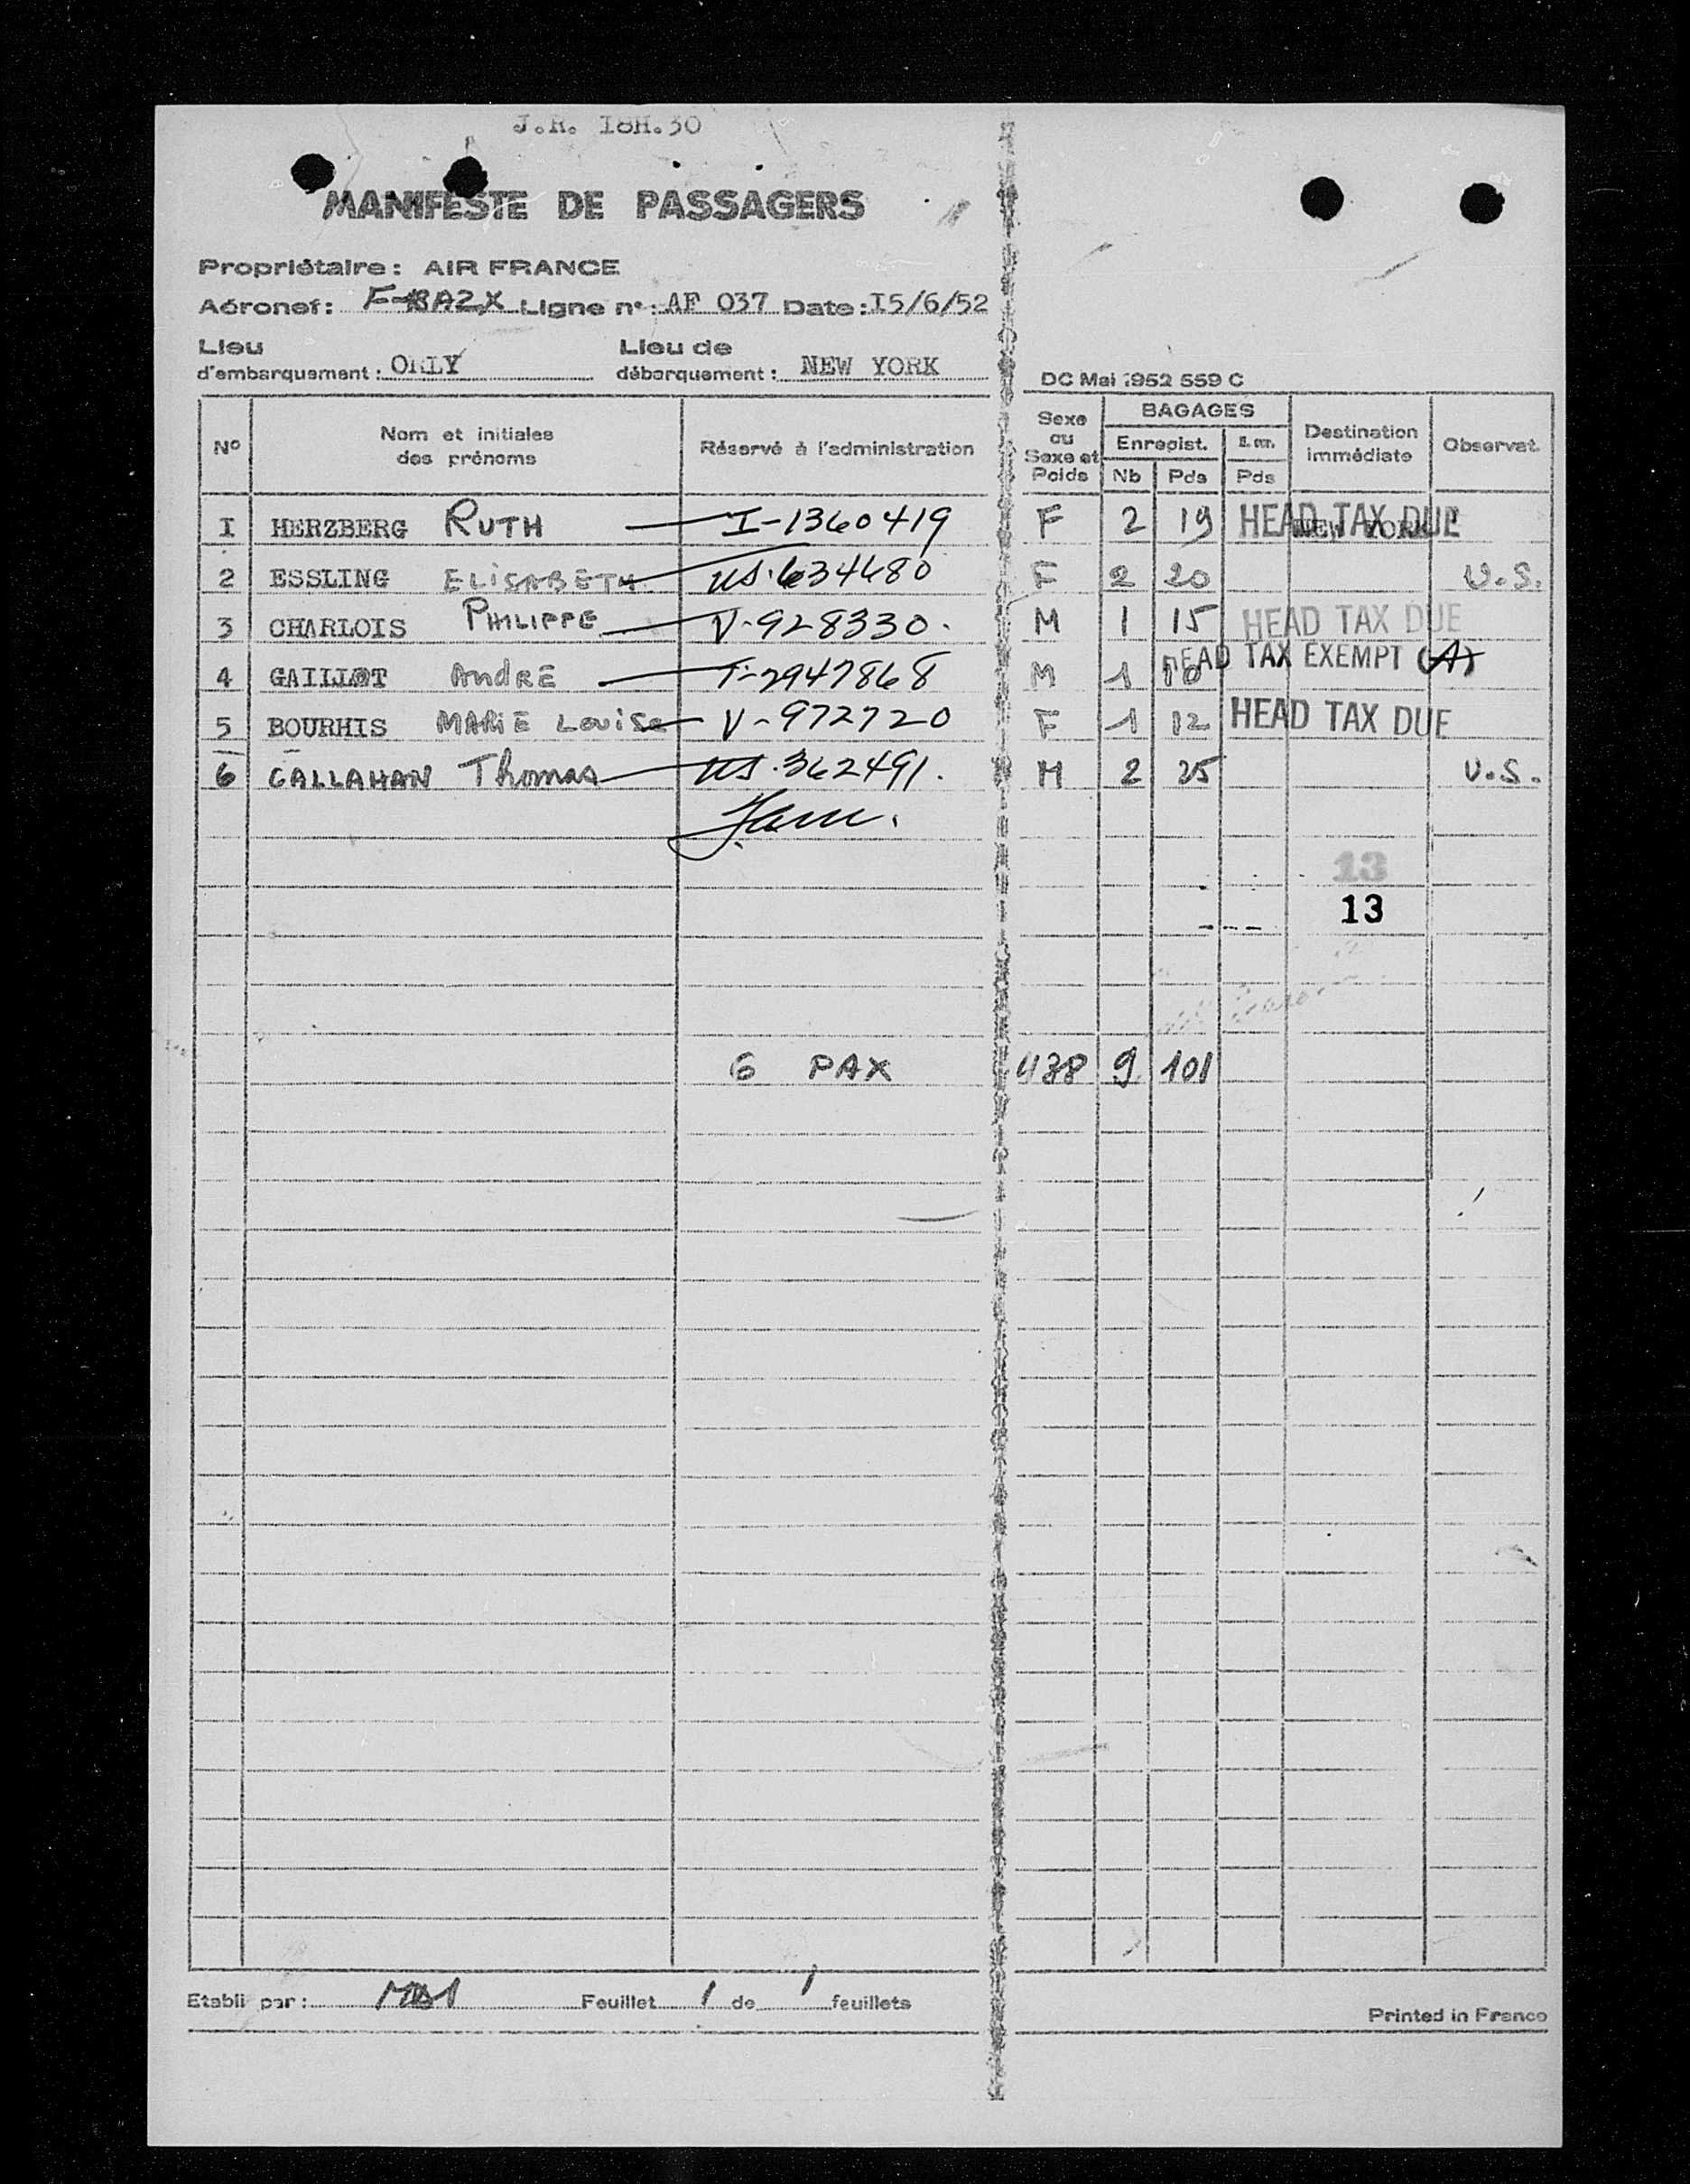 J.R. I8H.30
MANIFESTE DE PASSAGERS
Propriétaire: AIR FRANCE
Aéronef: F-BAZX Ligne n°: AF 037 Date: I5/6/52
Lieu d'embarquement: ORLY Lieu de débarquement: NEW YORK
DC Mai 1952 559 C
N° Nom et initiales des prénoms Réservé à l'administration Sexe ou Sexe et Poids BAGAGES Enregist. Nb Pds Pds Destination immédiate Observat.
I HERZBERG RUTH I-1360419 F 2 19 HEAD TAX DUE NEW YORK
2 ESSLING ELISABETH US.634680 F 2 20 U.S.
3 CHARLOIS PHILIPPE V-928330. M 1 15 HEAD TAX DUE
4 GAILLOT AndRE T-2947868 M 1 10 HEAD TAX EXEMPT (A)
5 BOURHIS MARiE Louise V-972720 F 1 12 HEAD TAX DUE
6 CALLAHAN Thomas US.362491. M 2 25 U.S.
13
13
6 PAX 438 9 101
Etabli par: Feuillet 1 de 1 feuillets
Printed in France